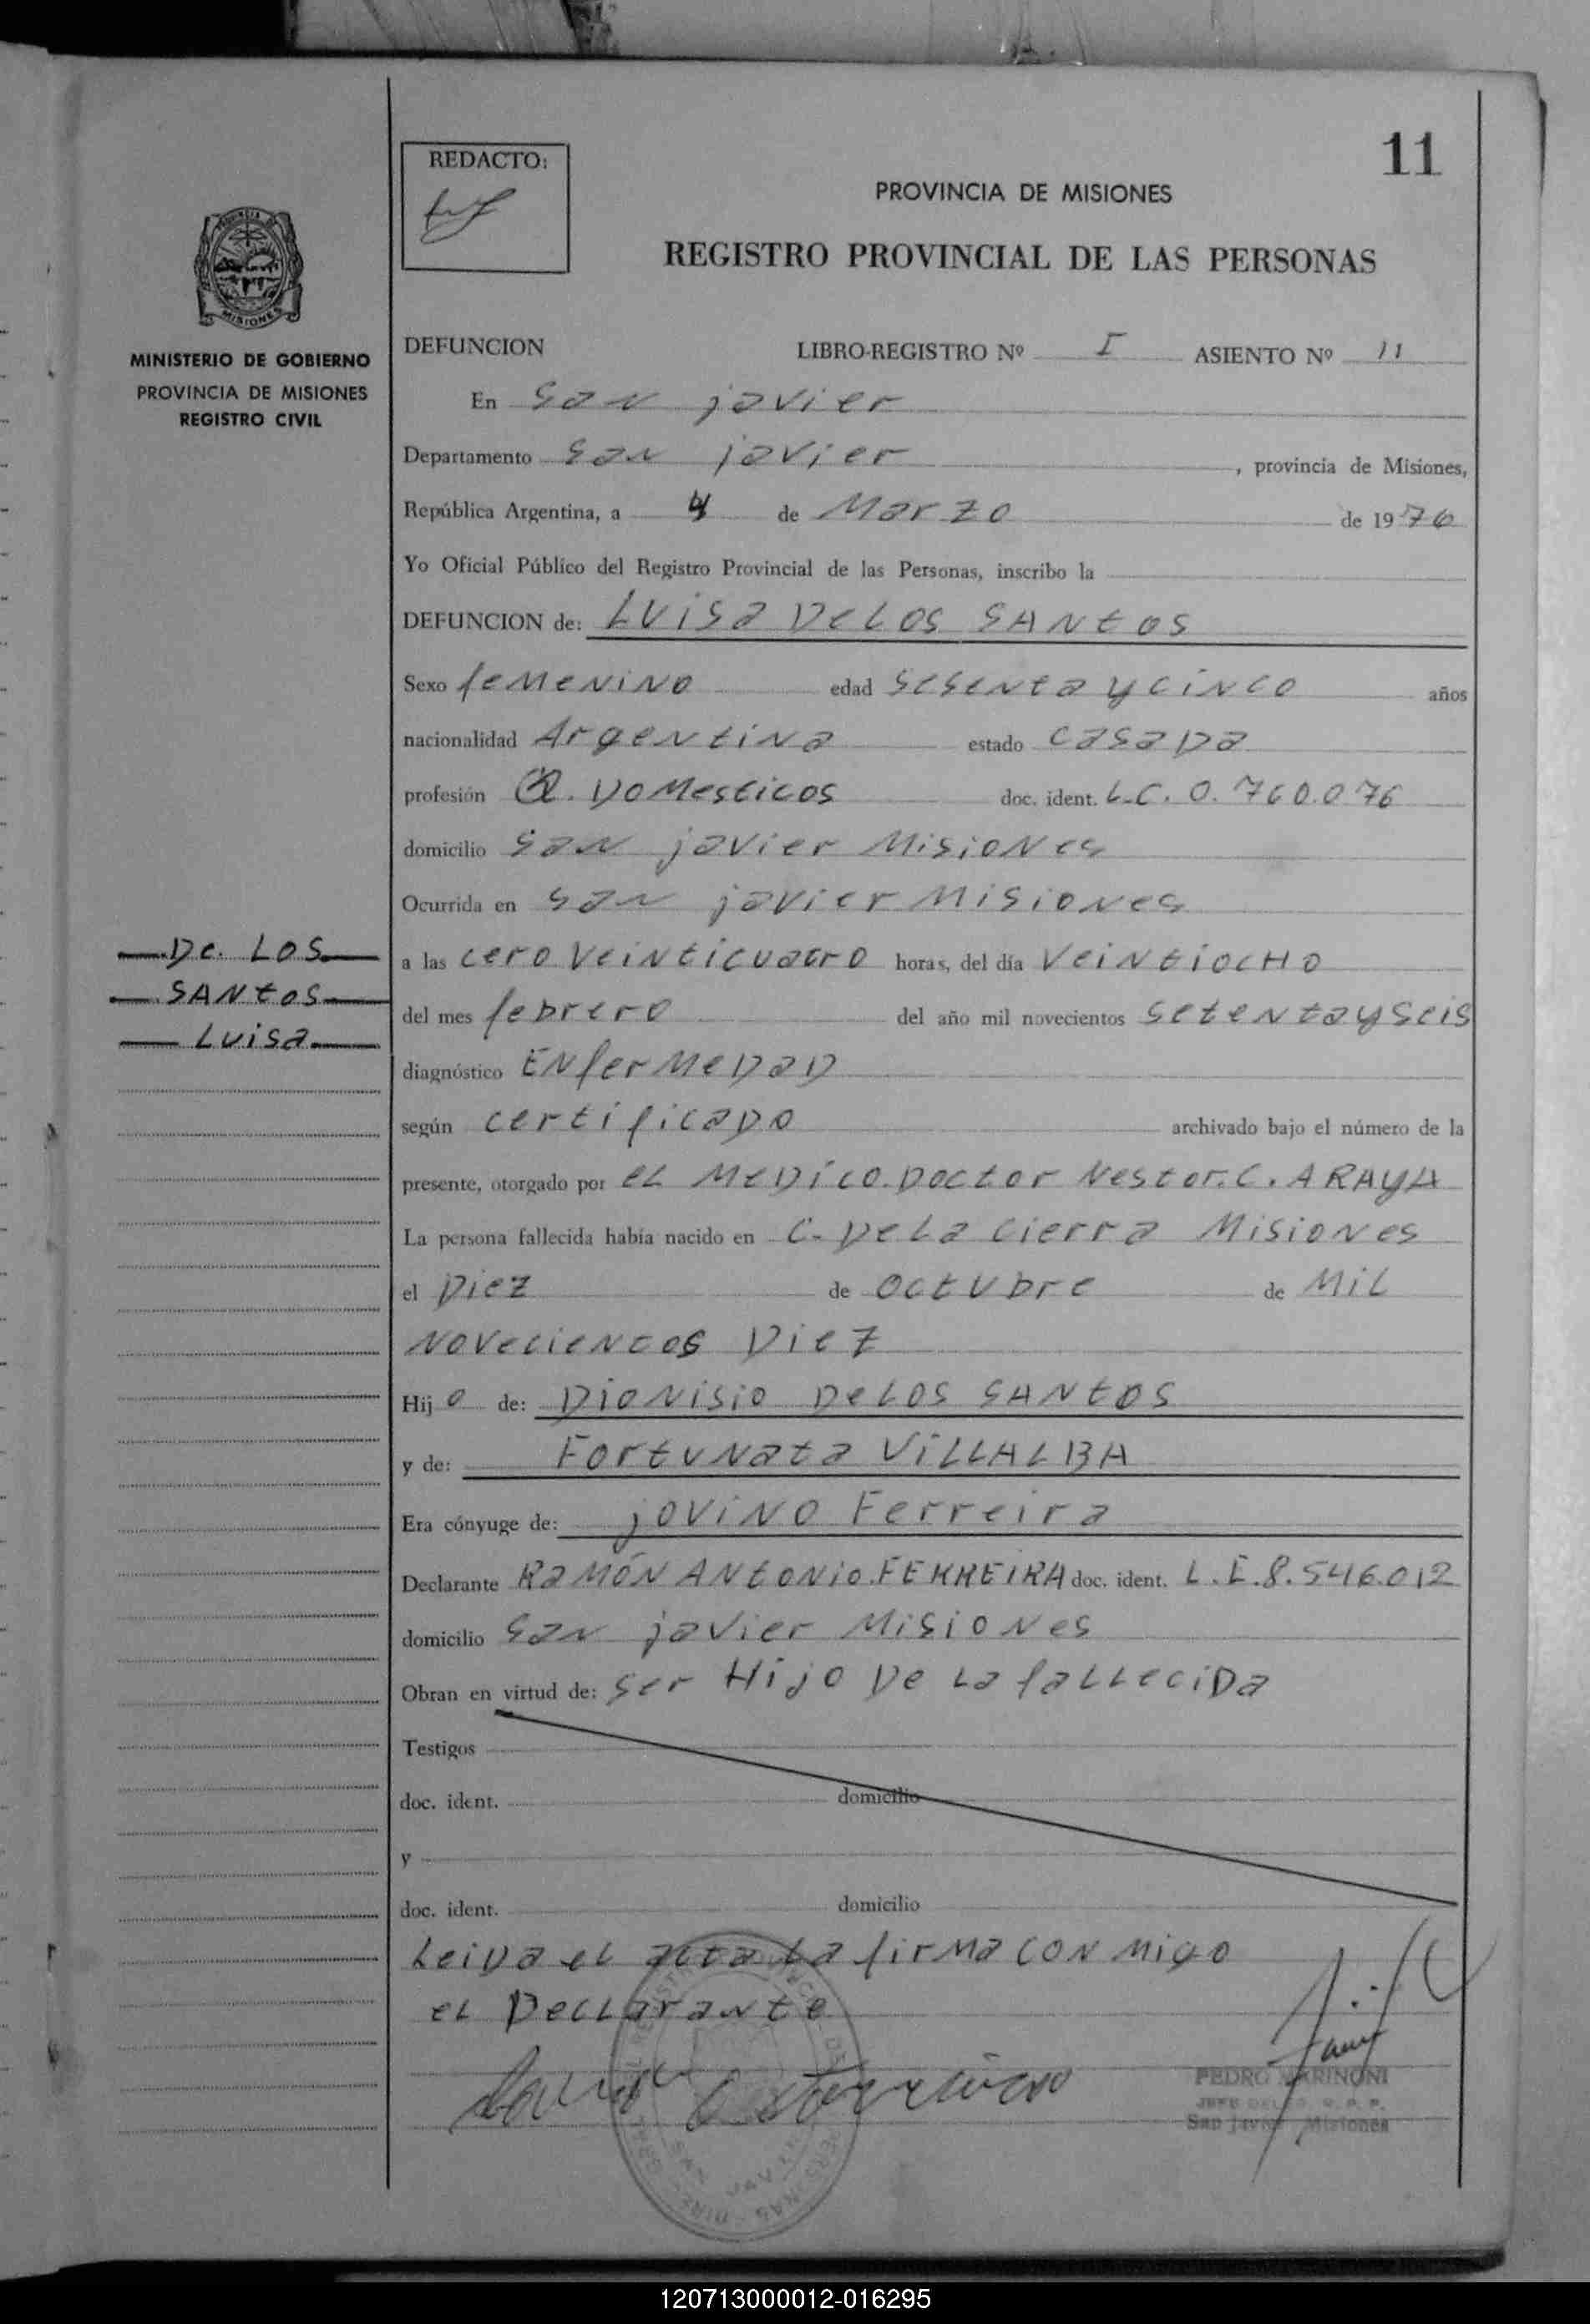 11
REDACTO:
PROVINCIA DE MISIONES
REGISTRO PROVINCIAL DE LAS PERSONAS
MISIONES
MINISTERIO DE GOBIERNO
PROVINCIA DE MISIONES
REGISTRO CIVIL
DEFUNCION LIBRO-REGISTRO Nº I ASIENTO Nº 11
En San javier
Departamento San javier, provincia de Misiones,
República Argentina, a 4 de Marzo de 1976
Yo Oficial Público del Registro Provincial de las Personas, inscribo la
DEFUNCION de: LUiSa DeLOS SANtOS
Sexo feMeNiNO edad SeSeNta y CiNCO años
nacionalidad ArgeNtiNa estado CaSaDa
profesión Q. DOMesticos doc. ident. L.C. 0.760.076
domicilio San javier MisioNes
Ocurrida en San javier MisioNes
a las cero veiNticuatro horas, del día VeiNtiOCHO
del mes febrero del año mil novecientos SeteNtaySeis
diagnóstico ENferMeDaD
según certificaDO archivado bajo el número de la
presente, otorgado por eL MeDico. Doctor Nestor. C. ARAyA
La persona fallecida había nacido en C. De La Cierra MisioNes
el Diez de Octubre de MiL
NovecieNtos Diez
Hijo de: DioNisio DeLOS SANtOS
y de: FortuNata ViLLALBA
Era cónyuge de: joviNO Ferreira
Declarante RaMÓN ANtONio. FERREIRA doc. ident. L.E. 8.546.012
domicilio San javier MisioNes
Obran en virtud de: Ser Hijo De La faLLeciDa
Testigos
doc. ident. domicilio
y
doc. ident. domicilio
LeiDa eL acta La firMa CON Migo
eL DecLaraNte
PEDRO MARINONI
San Javier Misiones
De. LOS
SANtOS
Luisa
120713000012-016295